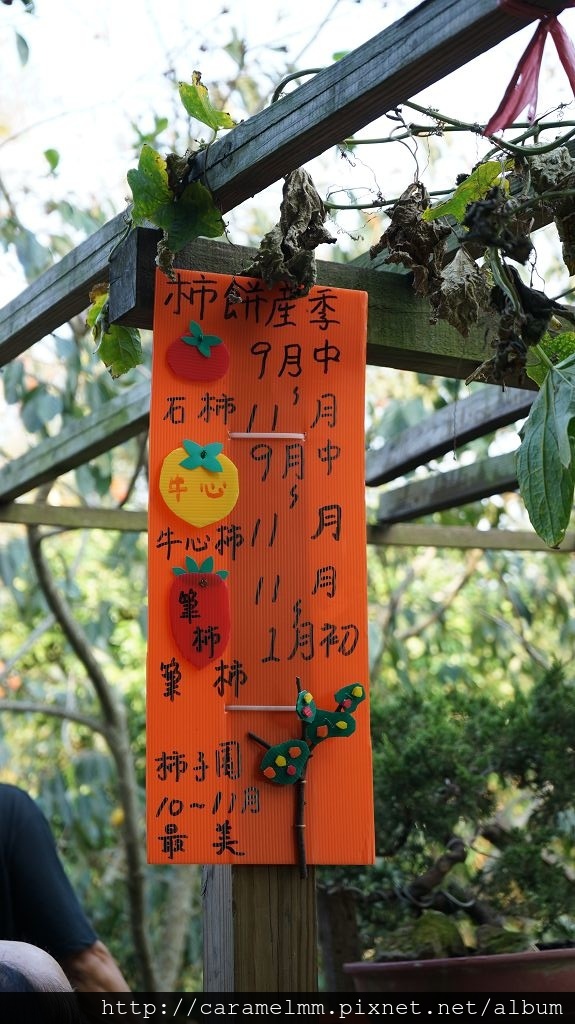 柿餅産季
9月中
〜
石柿 11月
9月中
牛心
〜
牛心柿 11月
11月
筆柿
〜
1月初
筆柿
柿子園
10~11月
最美
http://caramelmm.pixnet.net/album